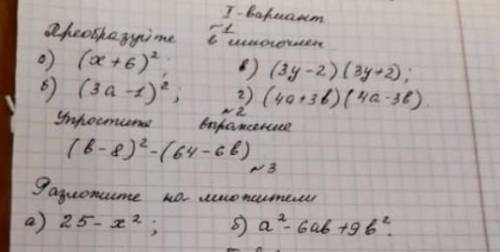 I-вариант
№1
Преобразуйте в многочлен
а) (x+6)²; в) (3y-2)(3y+2);
б) (3a-1)²; г) (4a+3b)(4a-3b).
№2
Упростите выражение
(b-8)²-(64-6b)
№3
Разложите на множители
а) 25-x²; б) a²-6ab+9b².